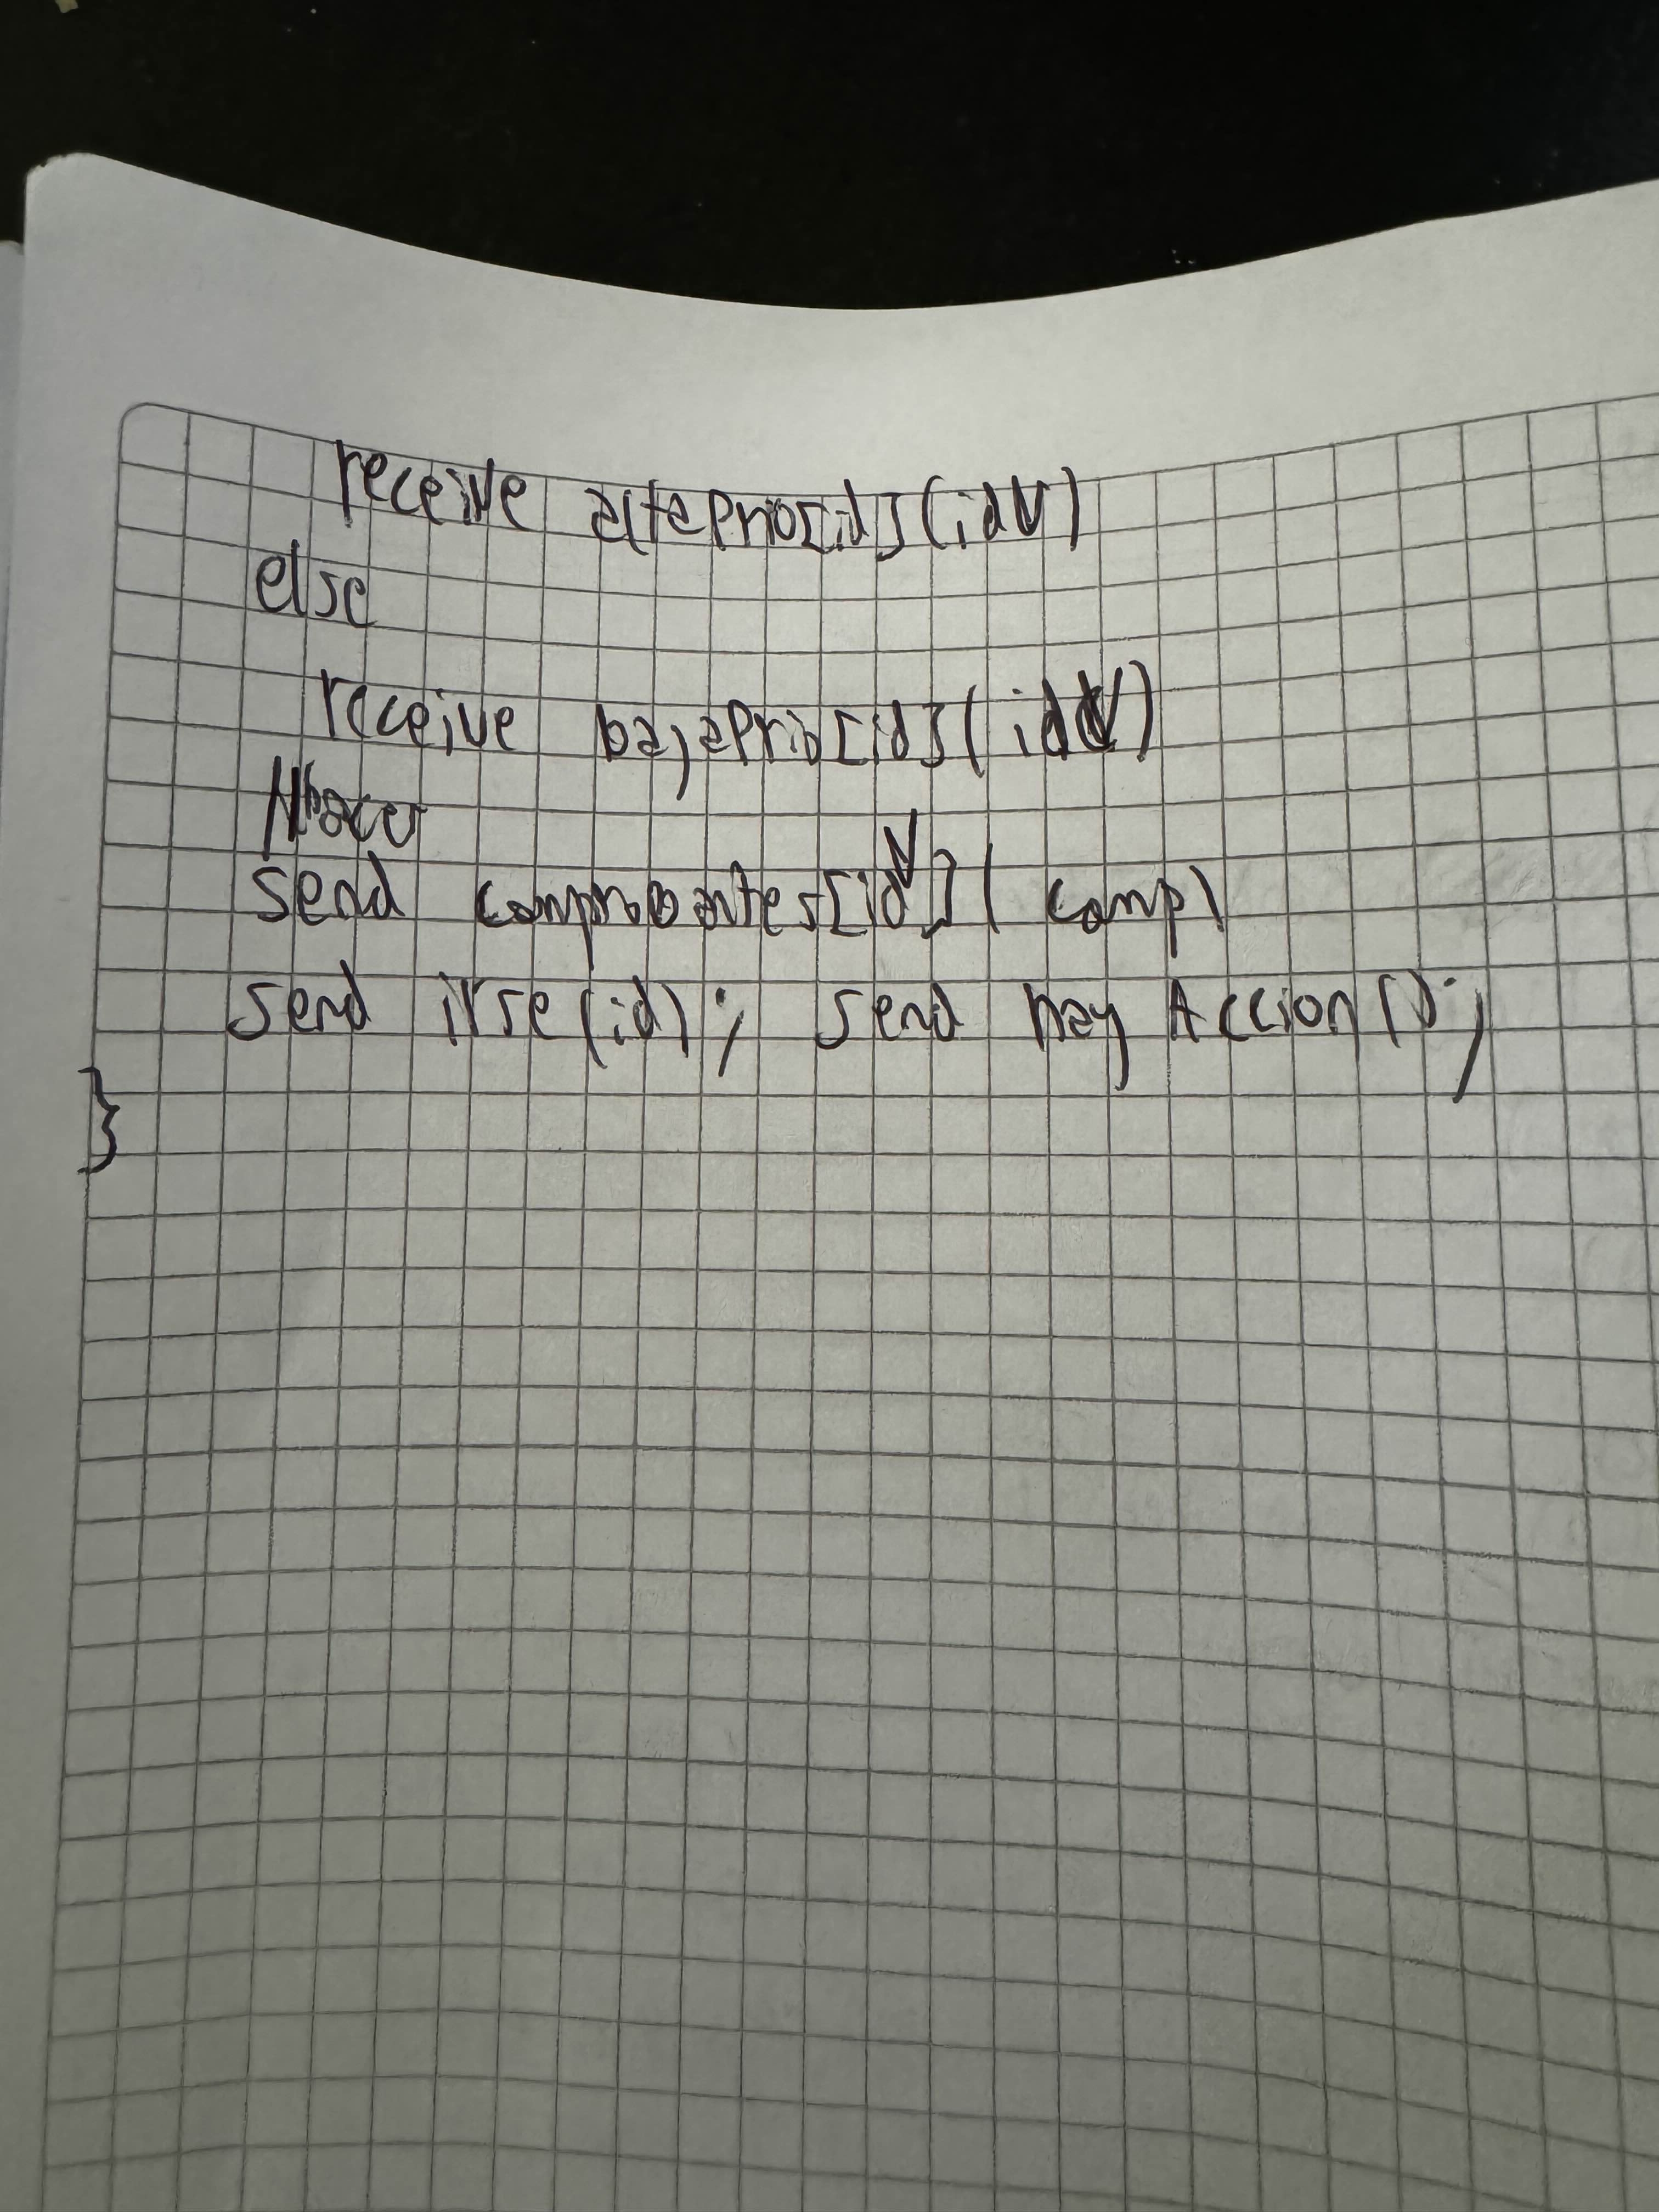 receive altaPrio[id](idV)
else
receive bajaPrio[id](idV)
send comprobantes[idV](comp)
send irse(id); send hay Accion();
}